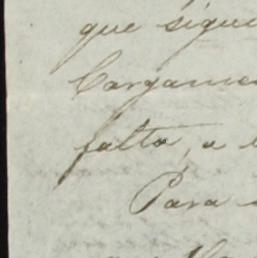 que sigue
Cargame
falta, a
Para